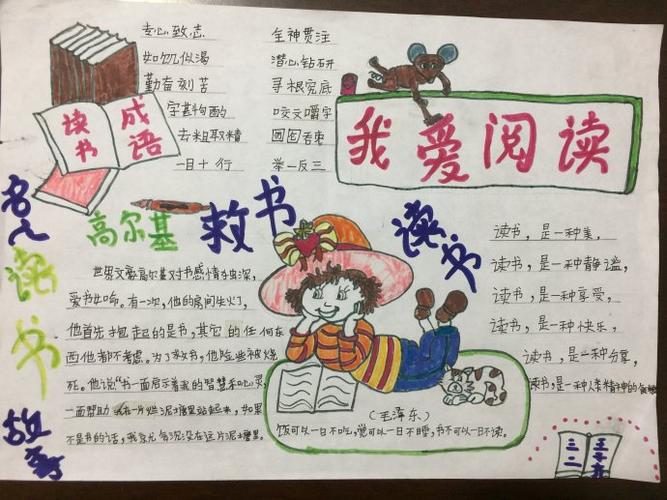 读书
成语
专心致志
如饥似渴
勤奋刻苦
字斟句酌
去粗取精
一目十行
全神贯注
潜心钻研
寻根究底
咬文嚼字
囫囵吞枣
举一反三
我爱阅读
名人读书故事
高尔基救书
世界文豪高尔基对书感情独深，
爱书如命。有一次，他的房间失火了，
他首先抱起的是书，其它的任何东
西他都不考虑。为了救书，他险些被烧
死。他说"书一面启示着我的智慧和心灵，
一面帮助我在一片烂泥塘里站起来，如果
不是书的话，我就沉没在这片泥塘里。
读书
读书，是一种美，
读书，是一种静谧，
读书，是一种享受，
读书，是一种快乐，
读书，是一种分享，
读书，是一种人类精神的食粮
（毛泽东）
饭可以一日不吃，觉可以一日不睡，书不可以一日不读。
三二